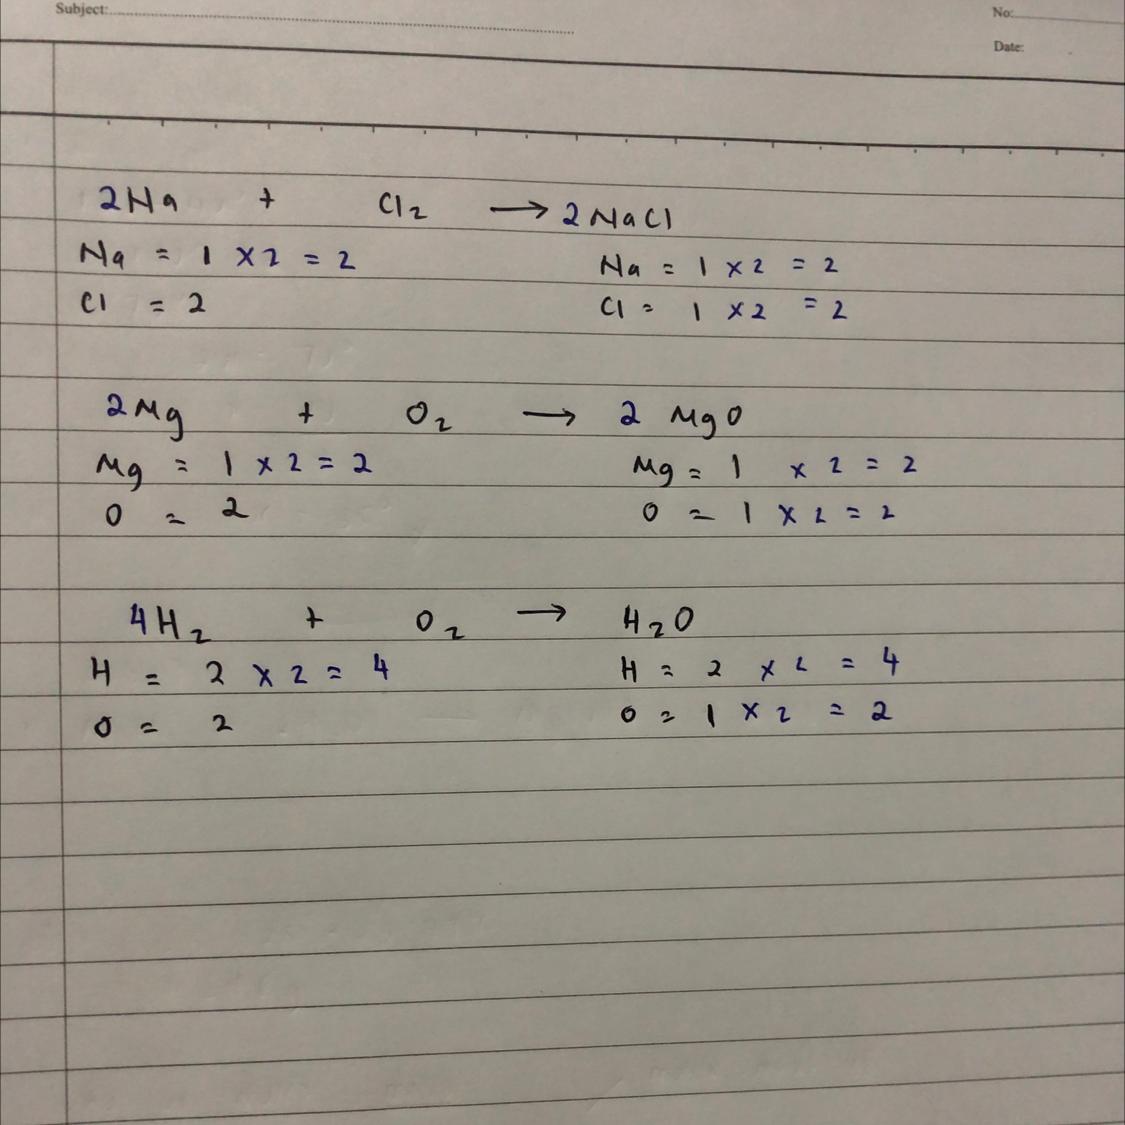 Subject: No:
Date:
2Na + Cl₂ → 2NaCl
Na = 1 × 2 = 2 Na = 1 × 2 = 2
Cl = 2 Cl = 1 × 2 = 2
2Mg + O₂ → 2 MgO
Mg = 1 × 2 = 2 Mg = 1 × 2 = 2
O = 2 O = 1 × 2 = 2
4H₂ + O₂ → H₂O
H = 2 × 2 = 4 H = 2 × 2 = 4
O = 2 O = 1 × 2 = 2